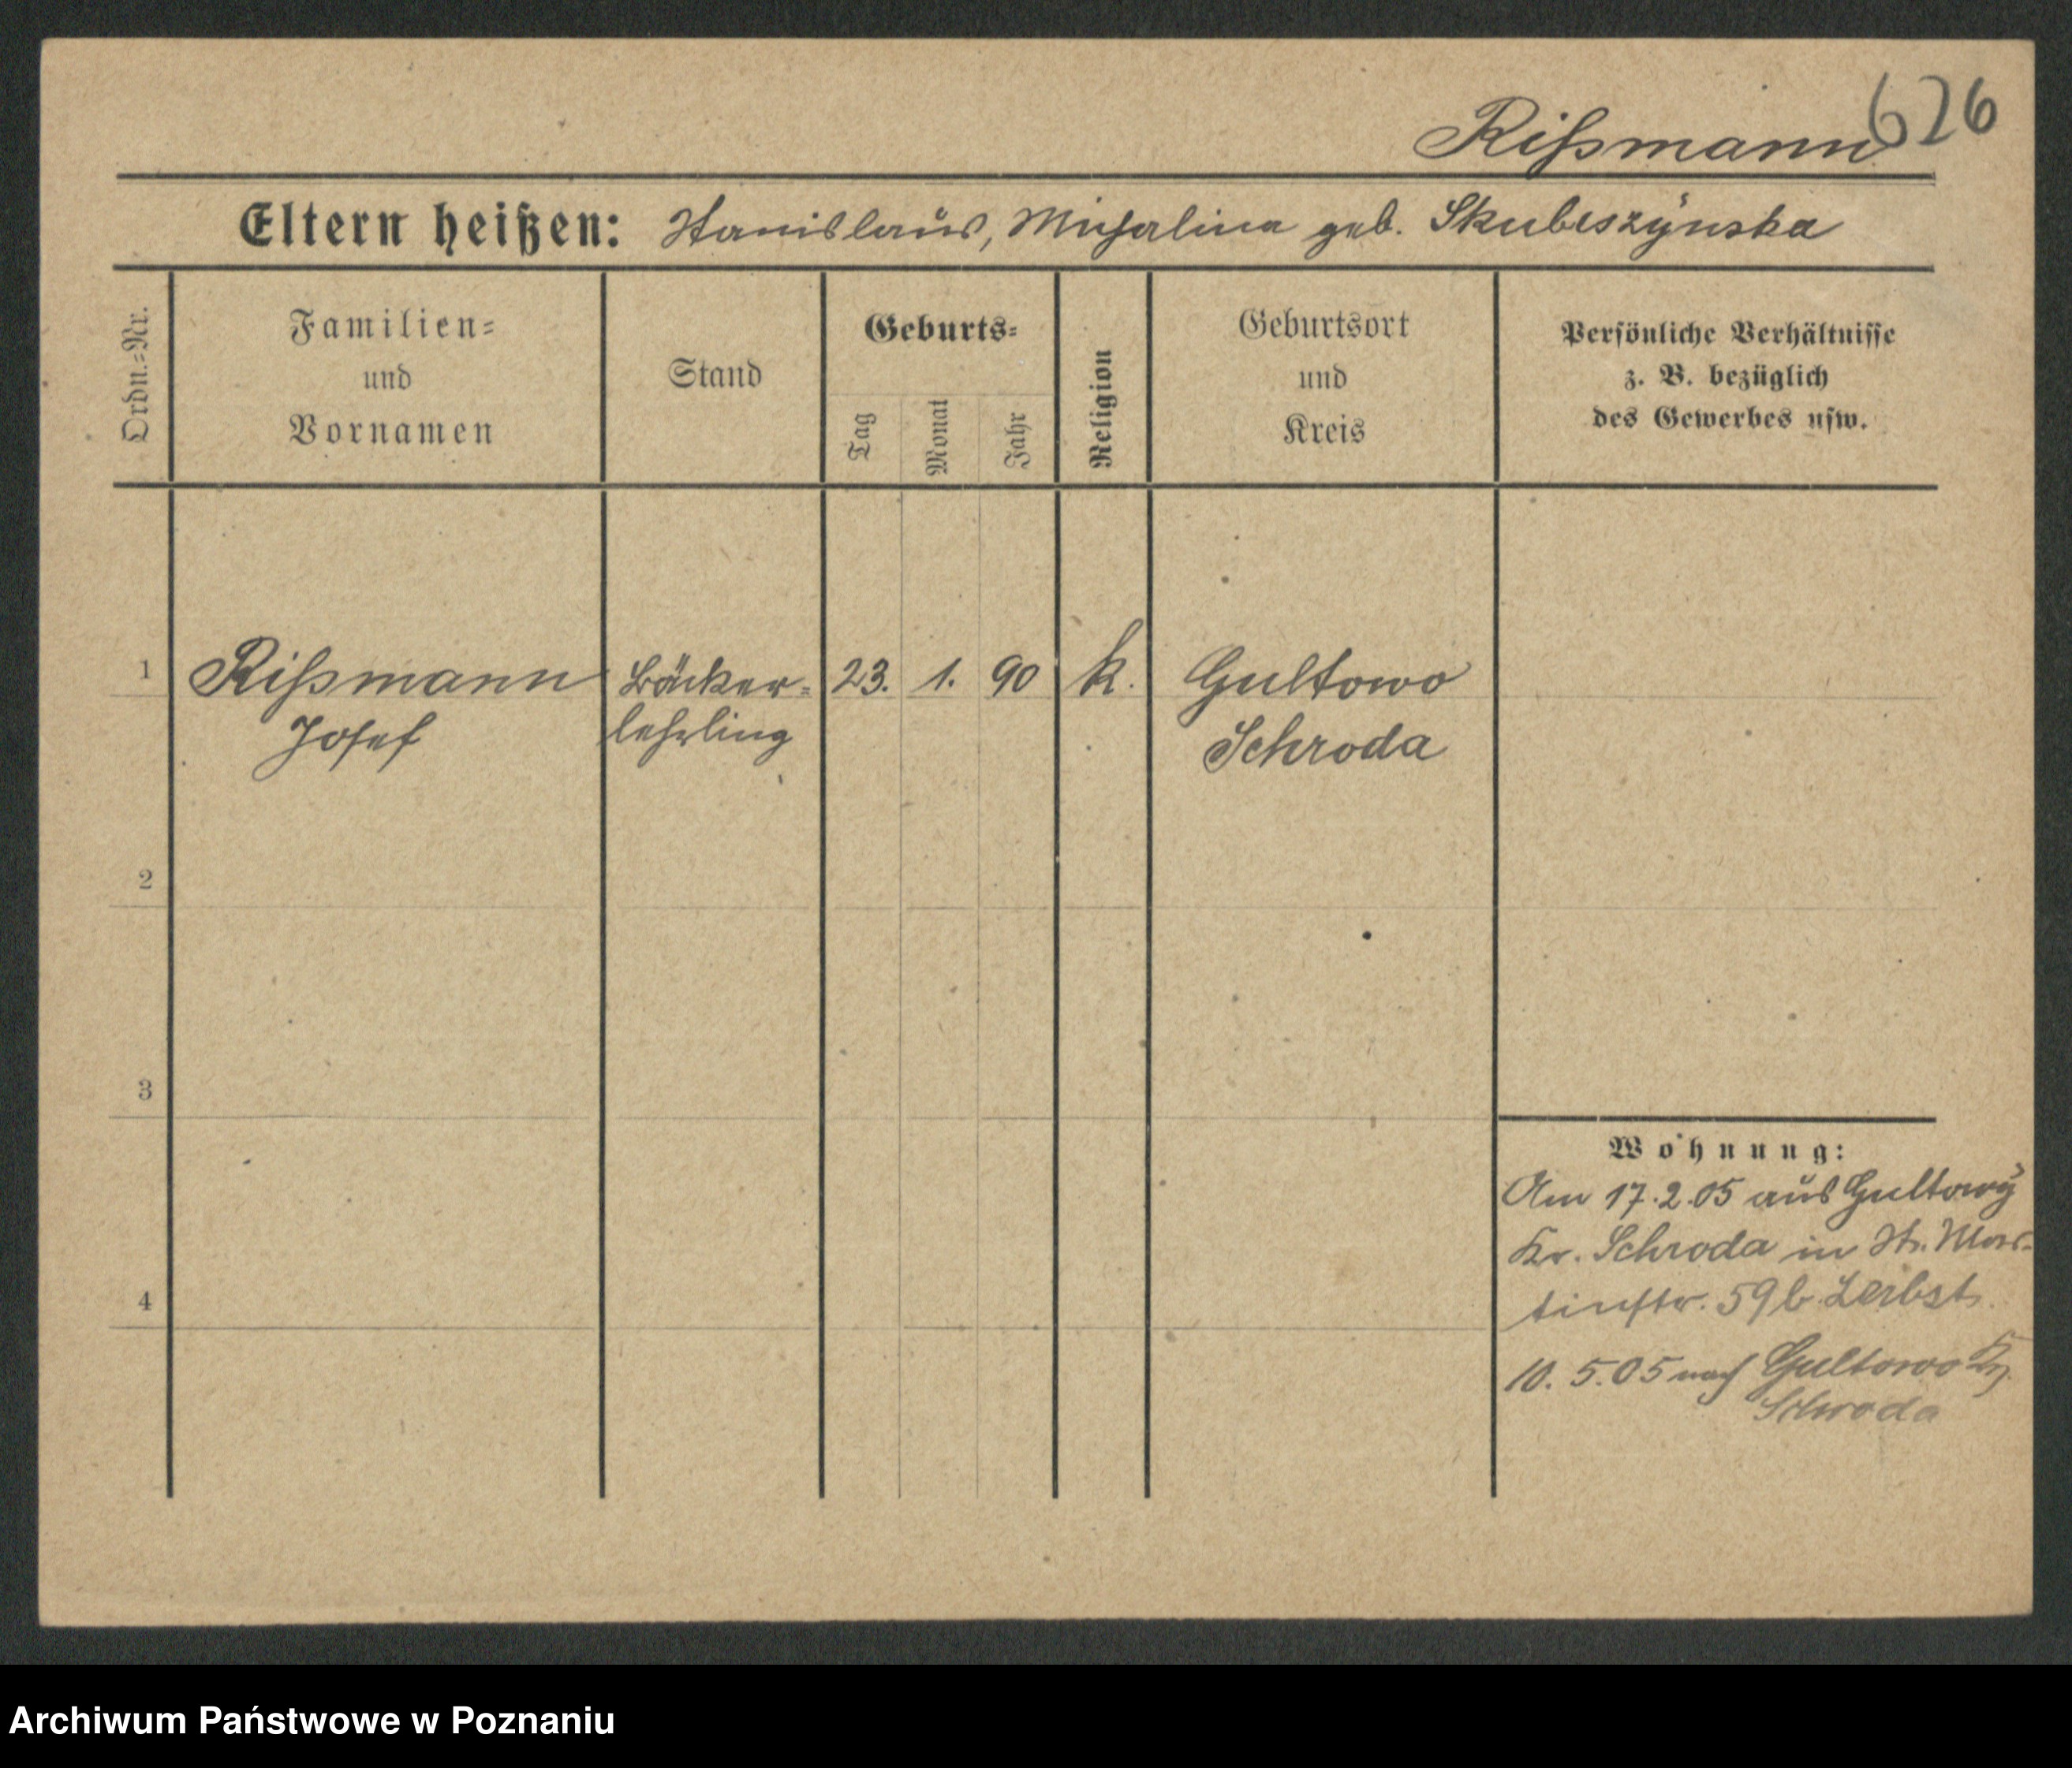 626
Rißmann
Eltern heißen: Stanislaus, Michalina geb. Skubiszynska
Ordn.=Nr.
Familien=
und
Vornamen
Stand
Geburts=
Tag
Monat
Jahr
Religion
Geburtsort
und
Kreis
Persönliche Verhältnisse
z. B. bezüglich
des Gewerbes usw.
1 Rißmann Bäcker= 23. 1. 90 k. Gultowo
Josef lehrling Schroda
2
3
4
Wohnung:
Am 17.2.05 aus Gultowy
Kr. Schroda in St. Mar-
tinstr. 59 b. Zerbst.
10. 5. 05 nach Gultowo Kr.
Schroda
Archiwum Państwowe w Poznaniu